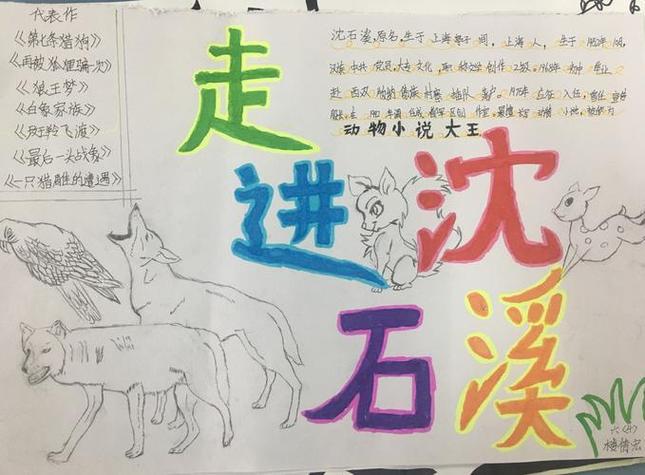 代表作
《第七条猎狗》
《再被狐狸骗一次》
《狼王梦》
《白象家族》
《斑羚飞渡》
《最后一头战象》
《一只猎雕的遭遇》
沈石溪,原名,生于上海亭子间,上海人,生于
汉族 中共 党员,大专 文化,职称文学创作2级。1968年 初中 毕业
赴 西双版纳 傣族 村寨 插队 落户。1975年 应征 入伍,
动物小说大王
走
进
沈
石
溪